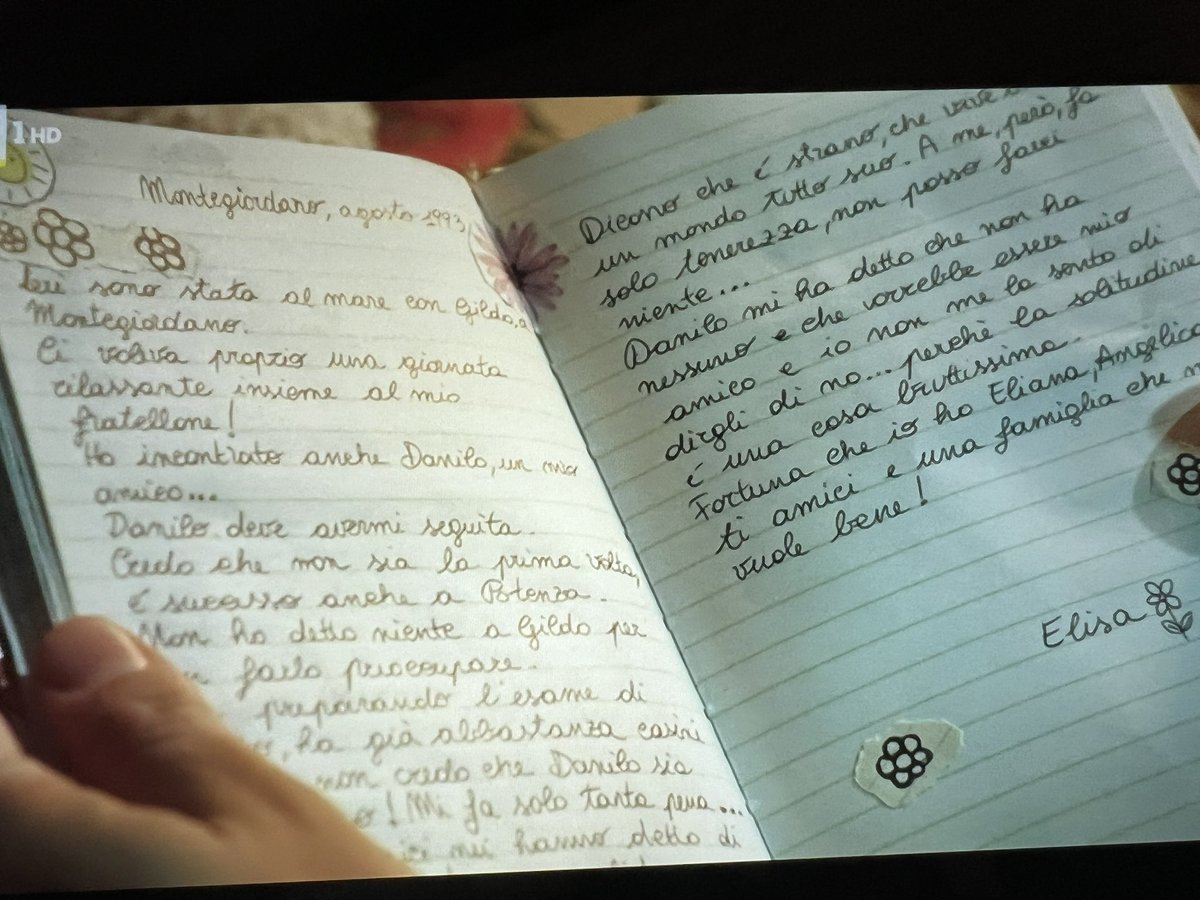 1 HD
Montegiordano, agosto 1993
Ieri sono stata al mare con Gildo, a
Montegiordano.
Ci voleva proprio una giornata
rilassante insieme al mio
fratellone!
Ho incontrato anche Danilo, un mio
amico...
Danilo deve avermi seguita.
Credo che non sia la prima volta,
è successo anche a Potenza.
Non ho detto niente a Gildo per
farlo preoccupare.
preparando l'esame di
ha già abbastanza casini
non credo che Danilo sia
! Mi fa solo tanta pena...
mi hanno detto di
Dicono che é strano, che vive
un mondo tutto suo. A me, però, fa
solo tenerezza, non posso farci
niente...
Danilo mi ha detto che non ha
nessuno e che vorrebbe essere mio
amico e io non me la sento di
dirgli di no... perchè la solitudine
é una cosa bruttissima.
Fortuna che io ho Eliana, Angelica
ti amici e una famiglia che
vuole bene!
Elisa